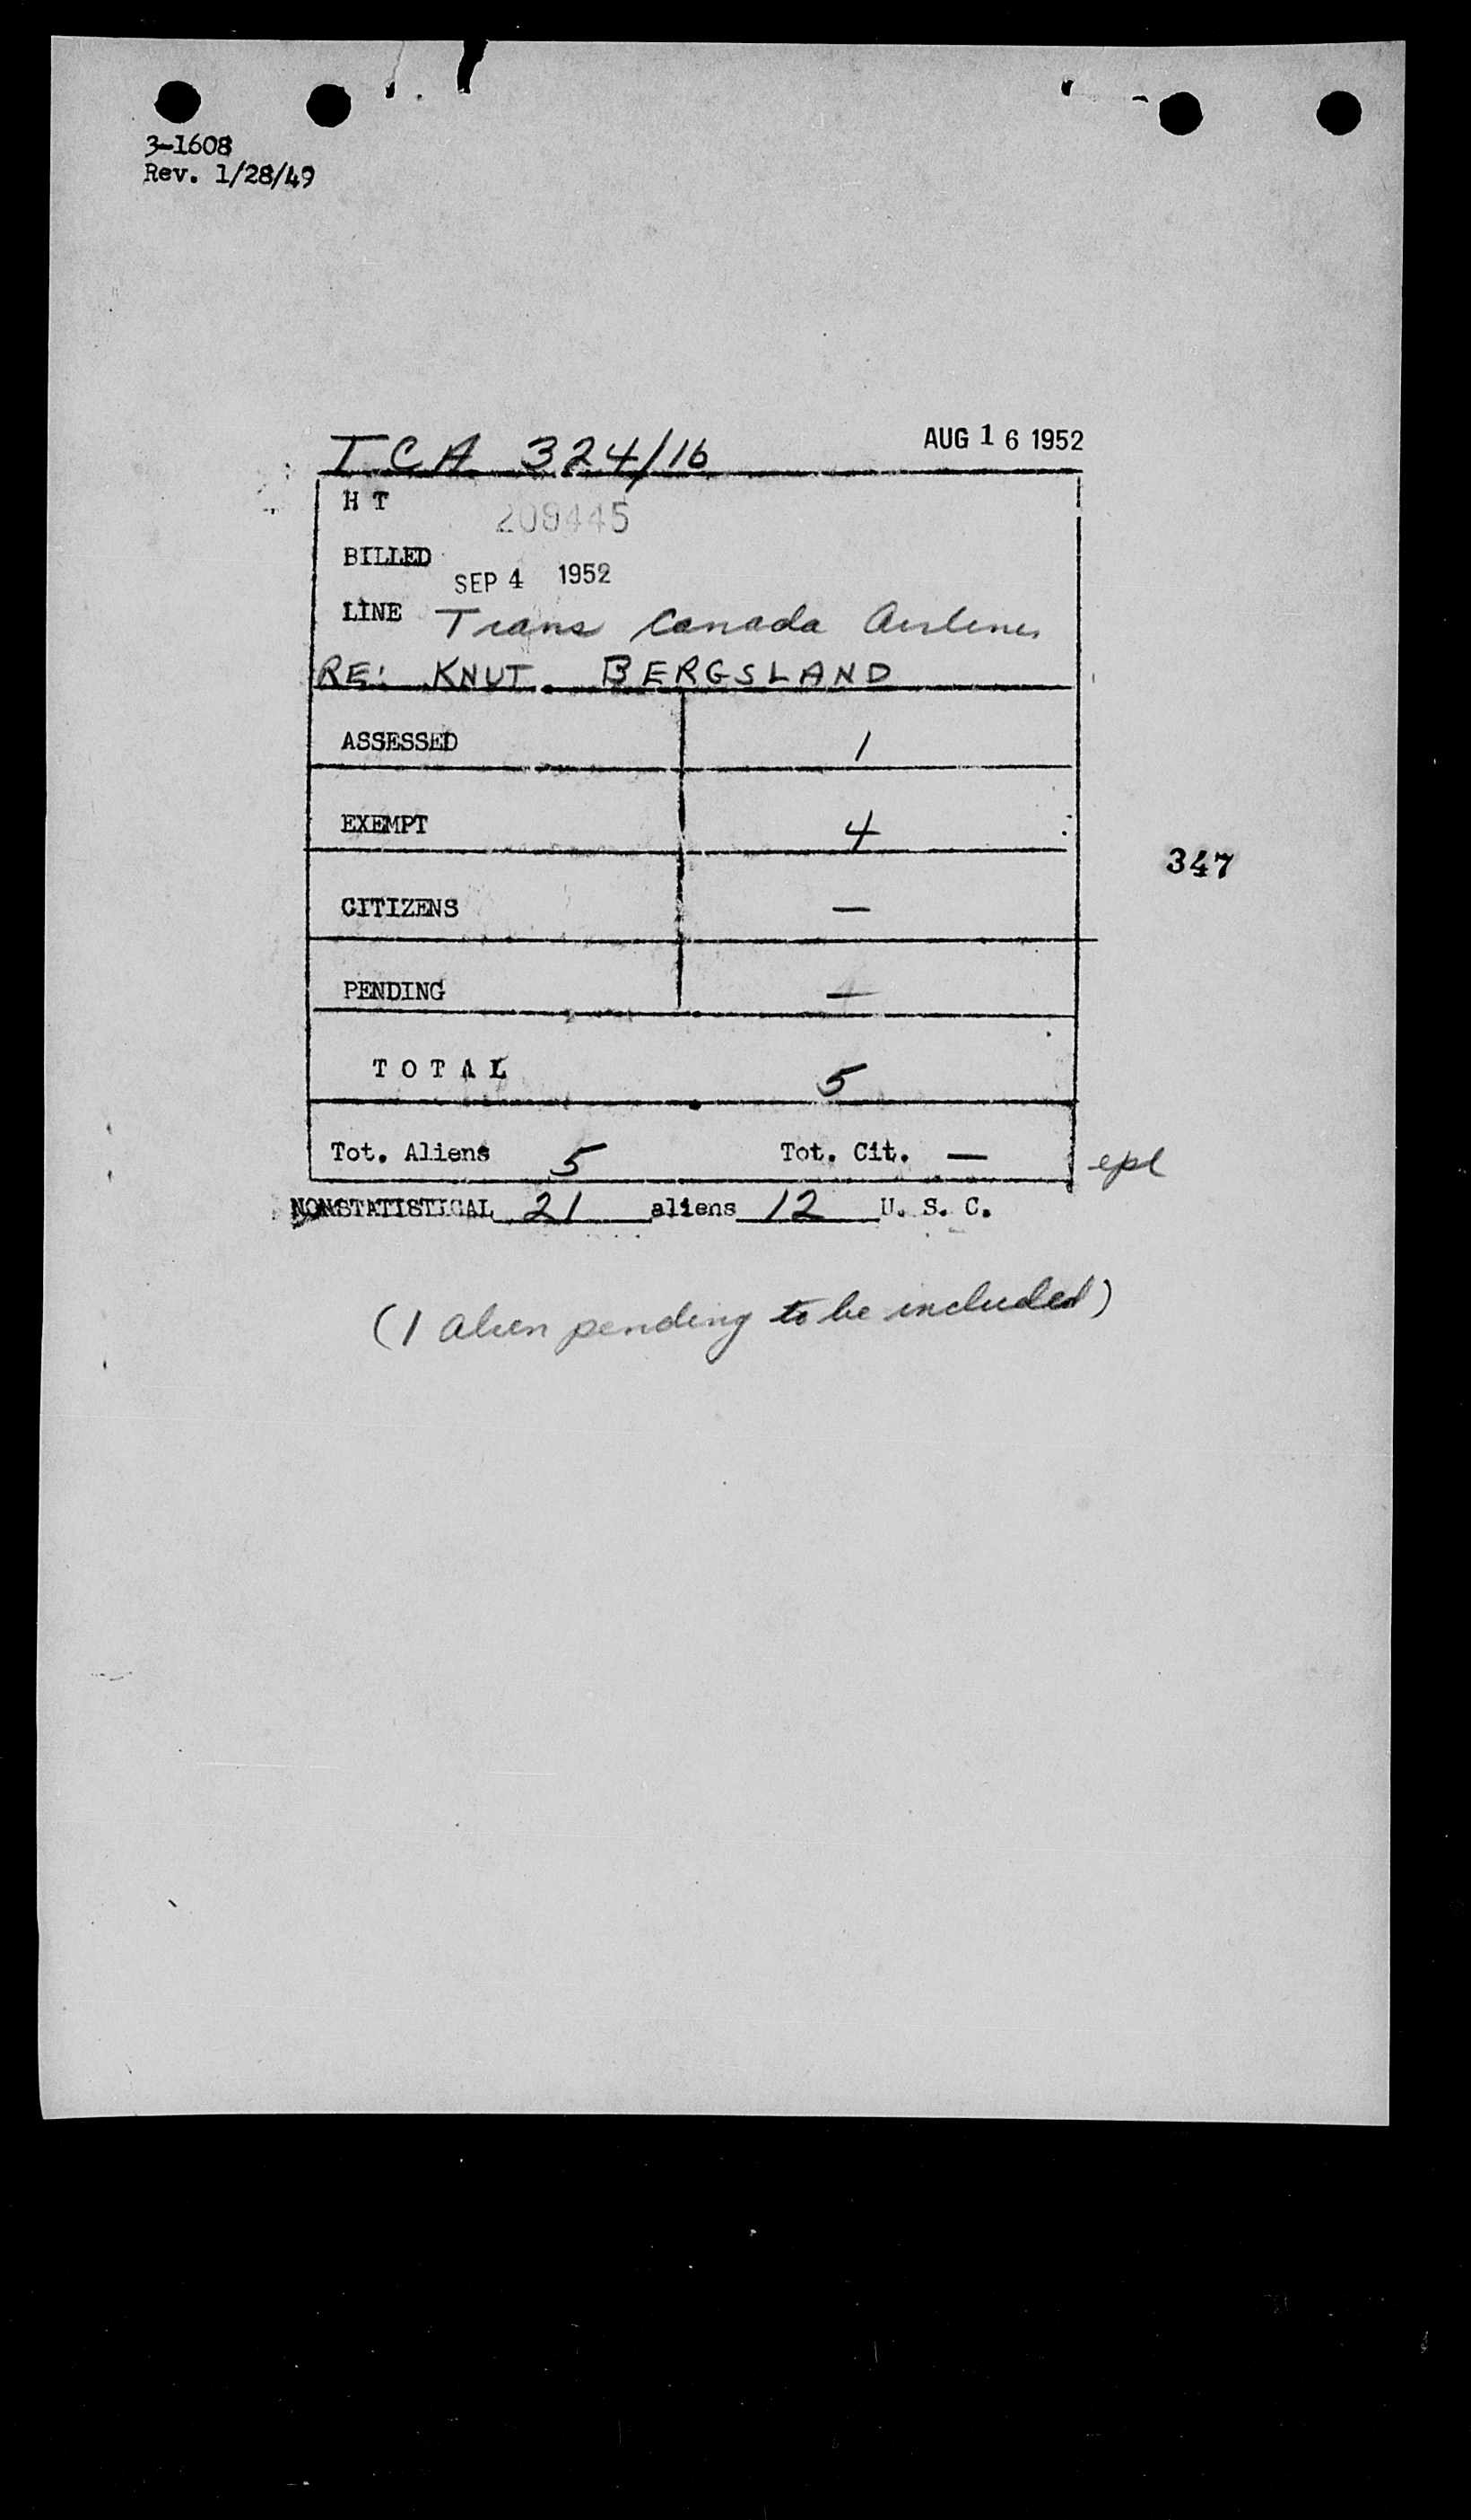 3-1608
Rev. 1/28/49
TCA 324/16 AUG 16 1952
H T 209445
BILLED SEP 4 1952
LINE Trans Canada Airlines
RE: KNUT BERGSLAND
ASSESSED 1
EXEMPT 4
347
CITIZENS —
PENDING —
TOTAL 5
Tot. Aliens 5 Tot. Cit. — epl
NONSTATISTICAL 21 aliens 12 U. S. C.
(1 alien pending to be included)